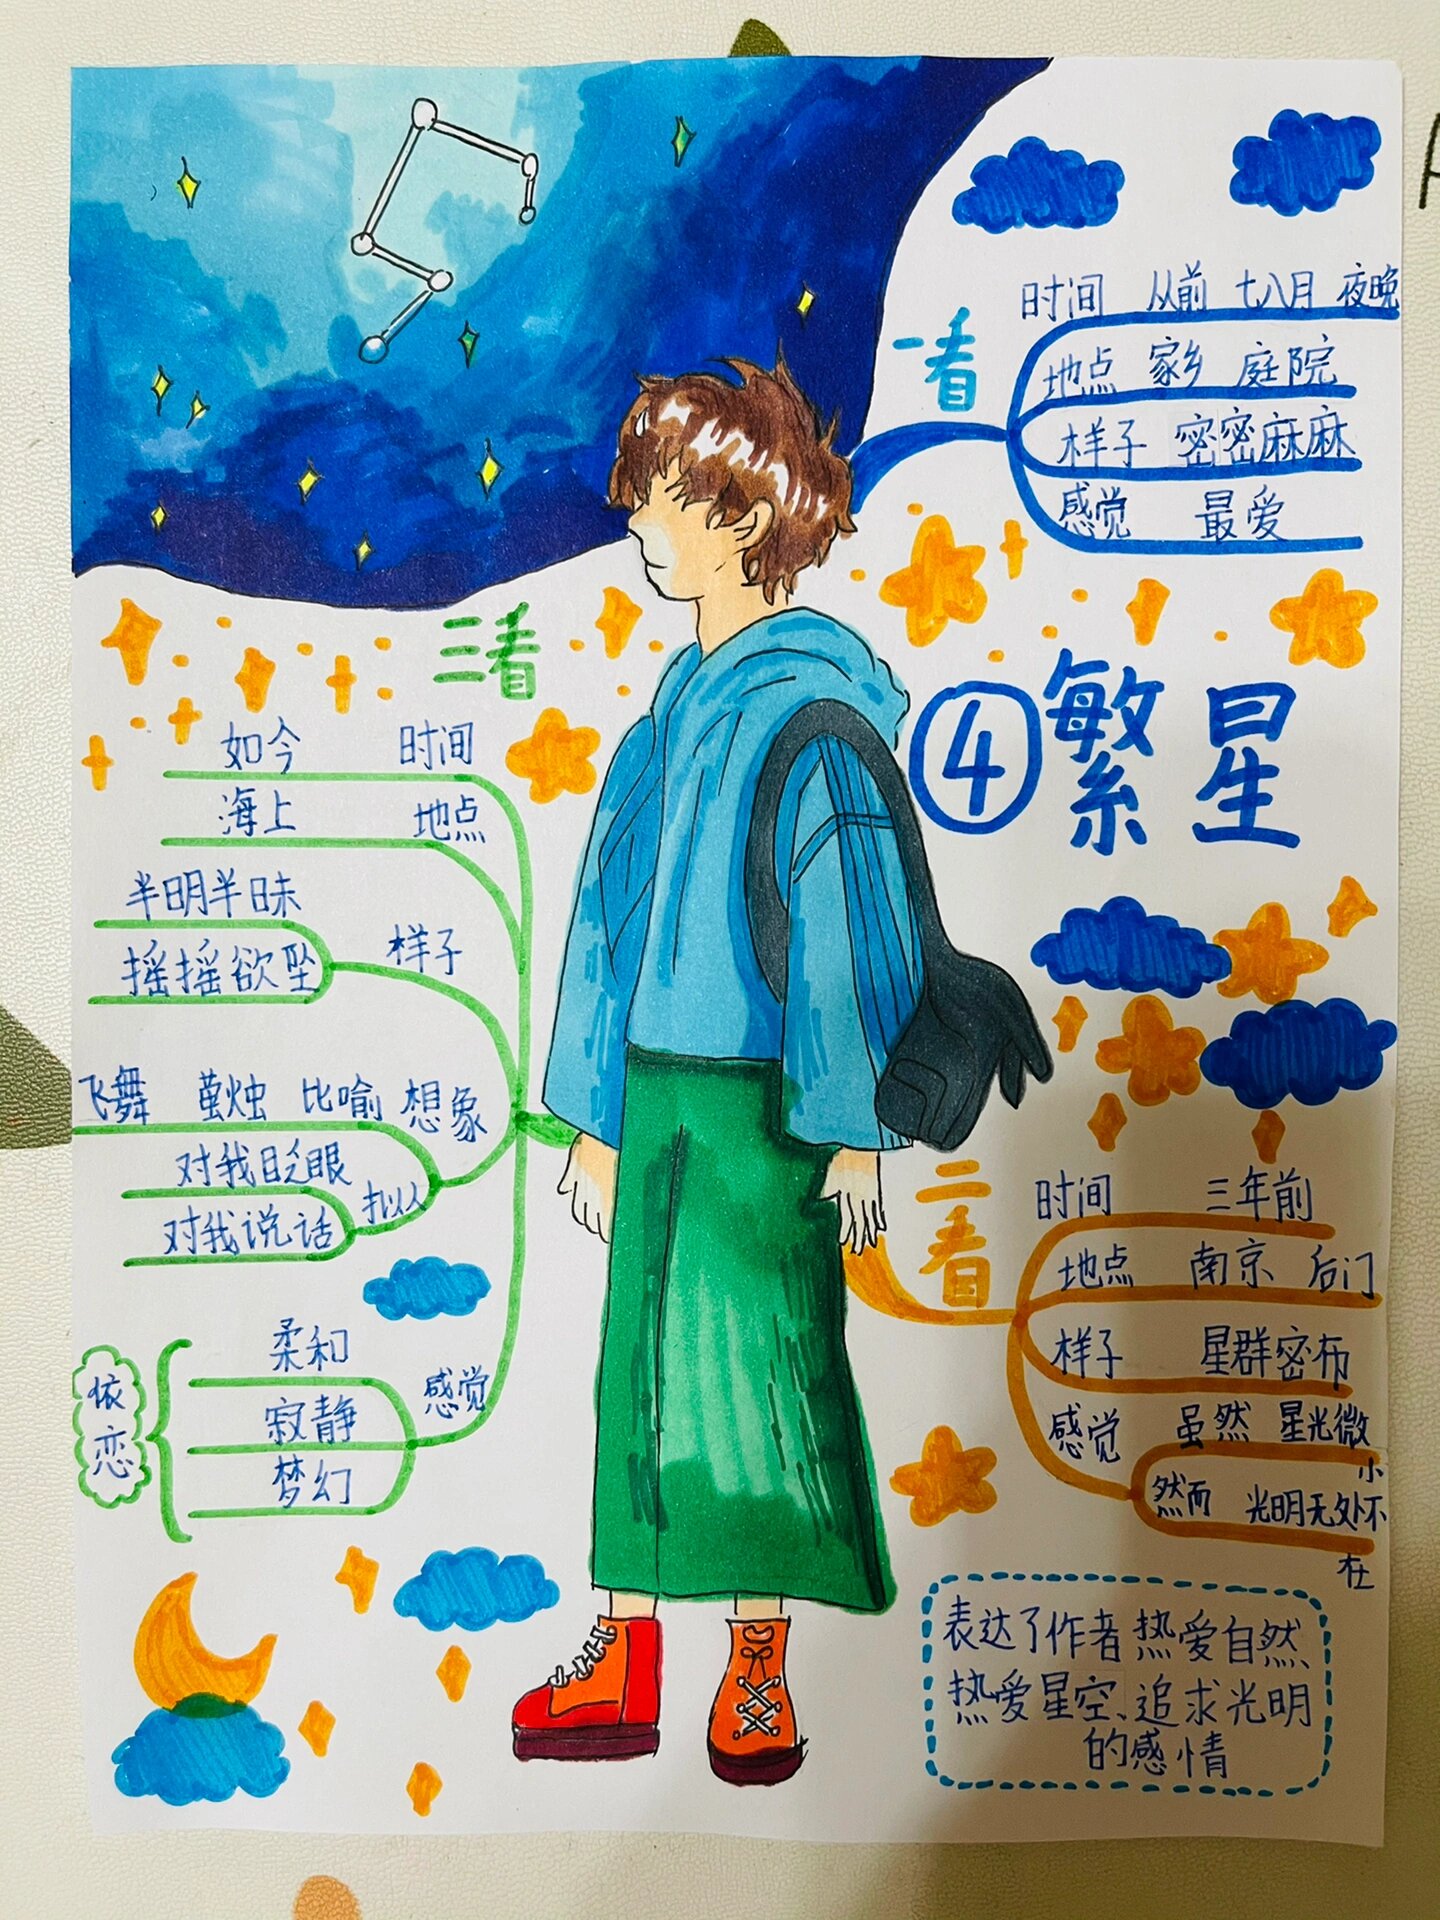 一看
时间 从前 七八月 夜晚
地点 家乡 庭院
样子 密密麻麻
感觉 最爱
④繁星
二看
时间 三年前
地点 南京 后门
样子 星群密布
感觉 虽然 星光微小
然而 光明无处不在
三看
如今 时间
海上 地点
半明半昧
摇摇欲坠
样子
飞舞 萤烛 比喻 想象
对我眨眼
对我说话
拟人
柔和
寂静
梦幻
感觉
依恋
表达了作者热爱自然
热爱星空、追求光明
的感情